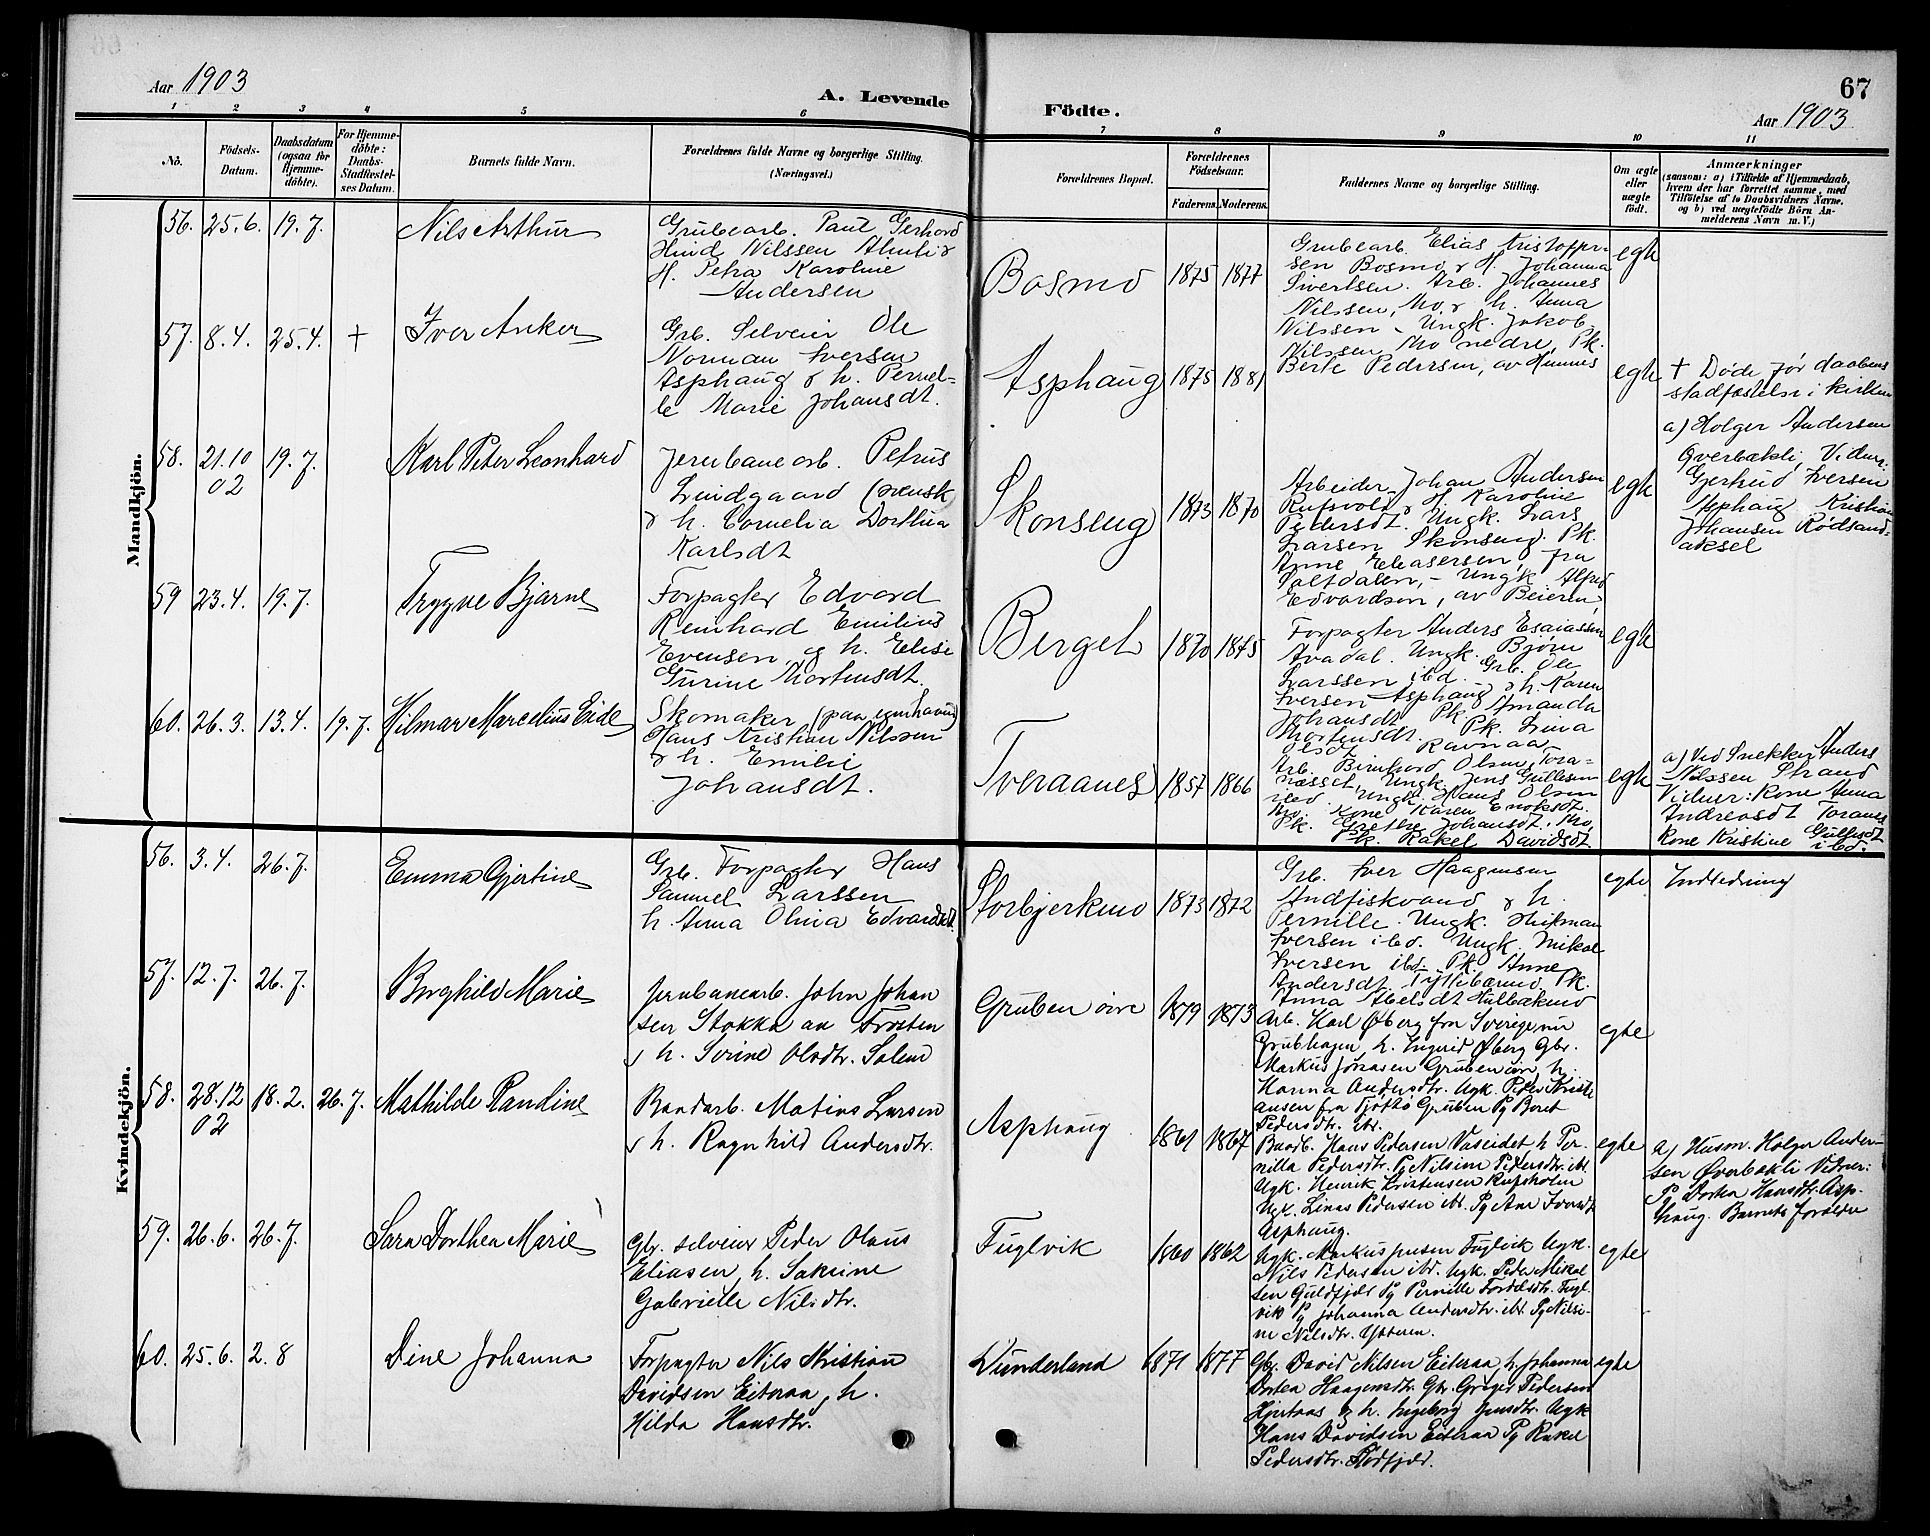 Aar 1903
A. Levende
Födte.
67
Aar 1903
1 2 3 4 5 6 7 8 9 10 11
No.
Födsels-
Datum.
Daabsdatum
(ogsaa for
Hjemme-
döbte).
For Hjemme-
döbte:
Daabs-
Stadfæstel-
ses Datum.
Barnets fulde Navn.
Forældrenes fulde Navne og borgerlige Stilling.
(Næringsvei.)
Forældrenes Bopæl.
Forældrenes
Födselsaar.
Faderens. Moderens.
Faddernes Navne og borgerlige Stilling.
Om ægte
eller
uægte
födt.
Anmærkninger
(saasom: a) i Tilfælde af Hjemmedaab,
hvem der har forrettet samme, med
Tilföielse af to Daabsvidners Navne,
og b) ved uægtefödte Börn An-
melderens Navn m. V.)
Mandkjön.
56. 25.6. 19.7.
Nils Arthur
Grubearb. Paul Gerhard
Hind Nilssen
H. Petra Karoline
Andersen
Bosmo
1875 1877
Grubearb. Elias Kristoffer-
sen Bosmo & H. Johanna
Sivertsen. Arb. Johannes
Nilssen, Mo, & h. Anna
Nilssen - Ungk. Jakob
Nilssen, Mo nedre, Pk.
Berte Pedersen, av Hemnes
egte
57. 8.4. 25.4. +
Iver Anker
Grb. Selveier Ole
Norman Iversen
Asphaug & h. Pernel-
le Marie Johansdt.
Asphaug
1875 1881
egte
+ Døde før daabens
stadfæstelse i kirken
a) Holger Andersen
Øverbakli, Vidner:
Iversen
Asphaug Kristian
Johansen Rødsand-
aksel
58. 21.10 19.7.
02
Karl Peter Leonhard
Jernbanearb. Petrus
Lindgaard (svensk)
& h. Cornelia Dorthea
Karlsdt
Skonseng
1873 1870
Arbeider Johan Andersen
Rufsvold & H. Karoline
Pedersdt. Ungk. Lars
Larsen Skonseng. Pk.
Anne Eleasersen, fra
Saltdalen, - Ungk. Alfred
Edvardsen, av Beieren,
egte
59 23.4. 19.7.
Trygve Bjarne
Forpagter Edvard
Reinhard Emilius
Evensen, og h. Elise
Gurine Mortensdt.
Berget
1870 1875
Forpagter Anders Esaiassen
Avadal. Ungk. Bjørn
Larssen ibd. Grb. Ole
Iversen Asphaug & h. Karen
Johansdt. Pk. Amanda
Mortensdt. Pk. Lina
Olsdt Ravnaa
egte
60. 26.3. 13.4. 19.7.
Hilmar Marcelius Eide
Skomaker (paa egenhaand)
Hans Kristian Nilssen
& h. Emilie
Johansdt.
Tveraanes
1857 1866
Arb. Bernhard Olsen, Tora-
næsset, Ungk. Jens Gullesen
ibd. Ungk. Hans Olsen
Mo. Kone Karen Enoksdt.
Pk. Grethe Johansdt. Mo,
Pk. Rakel Davidsdt
egte
a) Ved Snekker Anders
Nilssen Strand
Vidner: Kone Anna
Andreasdt Toranes
Kone Kristine Gullesdt
ibd.
Kvindekjön.
56. 3.4. 26.7.
Emma Gjertine
Grb. Forpagter Hans
Samuel Larssen
h. Anna Olina Edvardsdt.
Storbjerkmo
1873 1872
Grb. Iver Haagensen
Andfiskvand & h.
Pernille. Ungk.
Iversen ibd. Ungk. Mikal
Iversen ibd. Pk. Anne
Andersdt. Pk.
Anna Abelsdt
egte
Indledning
57. 12.7. 26.7.
Borghild Marie
Jernbanearb. John Johan
sen Stokka av Frosten
& h. Serine Olsdtr. Salem
Gruben övre
1879 1873
Arb. Karl Øberg fra Sverige nu
Grubhagen, h. Ingerid Øberg Gbr.
Markus Jonasen Gruben övre, h.
Hanna Andersdtr. Ugk. Peder Kristi
ansen fra Tjøttø Gruben Pg Beret
Pedersdtr. ibr.
egte
58. 28.12 18.2. 26.7.
02
Mathilde Randine
Bandarb. Matias Larsen
& h. Ragnhild Andersdtr.
Asphaug
1861 1867
Baadb. Hans Pedersen Vaseidet h Per-
nilla Pedersdtr. Pg Nilsine Pedersdtr. ibd
Ugk. Henrik Kristensen Rufsholm
Ugk. Linas Pedersen ibd. Pg Ane Iversdt
Asphaug.
egte
a) Husm. Holger Ander-
sen Øverbakli Vidner:
Pg Dortea Hansdtr. Asp-
haug. Barnets forældre
59. 26.6. 26.7.
Sara Dorthea Marie
Gbr. selveier Peder Olaus
Eliasen, h. Sakrine
Gabrielle Nilsdtr.
Fuglvik
1860 1862
Ugk. Markus Jensen Fuglvik Ugk.
Nils Pedersen ibd. Ugk. Peder Mikal
sen Guldfjeld Pg Pernille Fordelsdtr. Fugl-
vik Pg Johanna Andersdtr. ibd Pg Nilsi-
ne Nilsdtr. Ytteren.
egte
60. 25.6. 2.8
Dine Johanna
Forpagter Nils Kristian
Davidsen Eiteraa, h.
Hilda Hansdtr.
Dunderland
1871 1877
Gbr. David Nilsen Eiteraa h. Johanna
Dortea Haagensdtr. Gbr. Greger Pedersen
Hjertaas og h. Ingeborg Jensdtr. Ugk
Hans Davidsen Eiteraa Pg Rakel
Pedersdtr. Stodfjeld.
egte